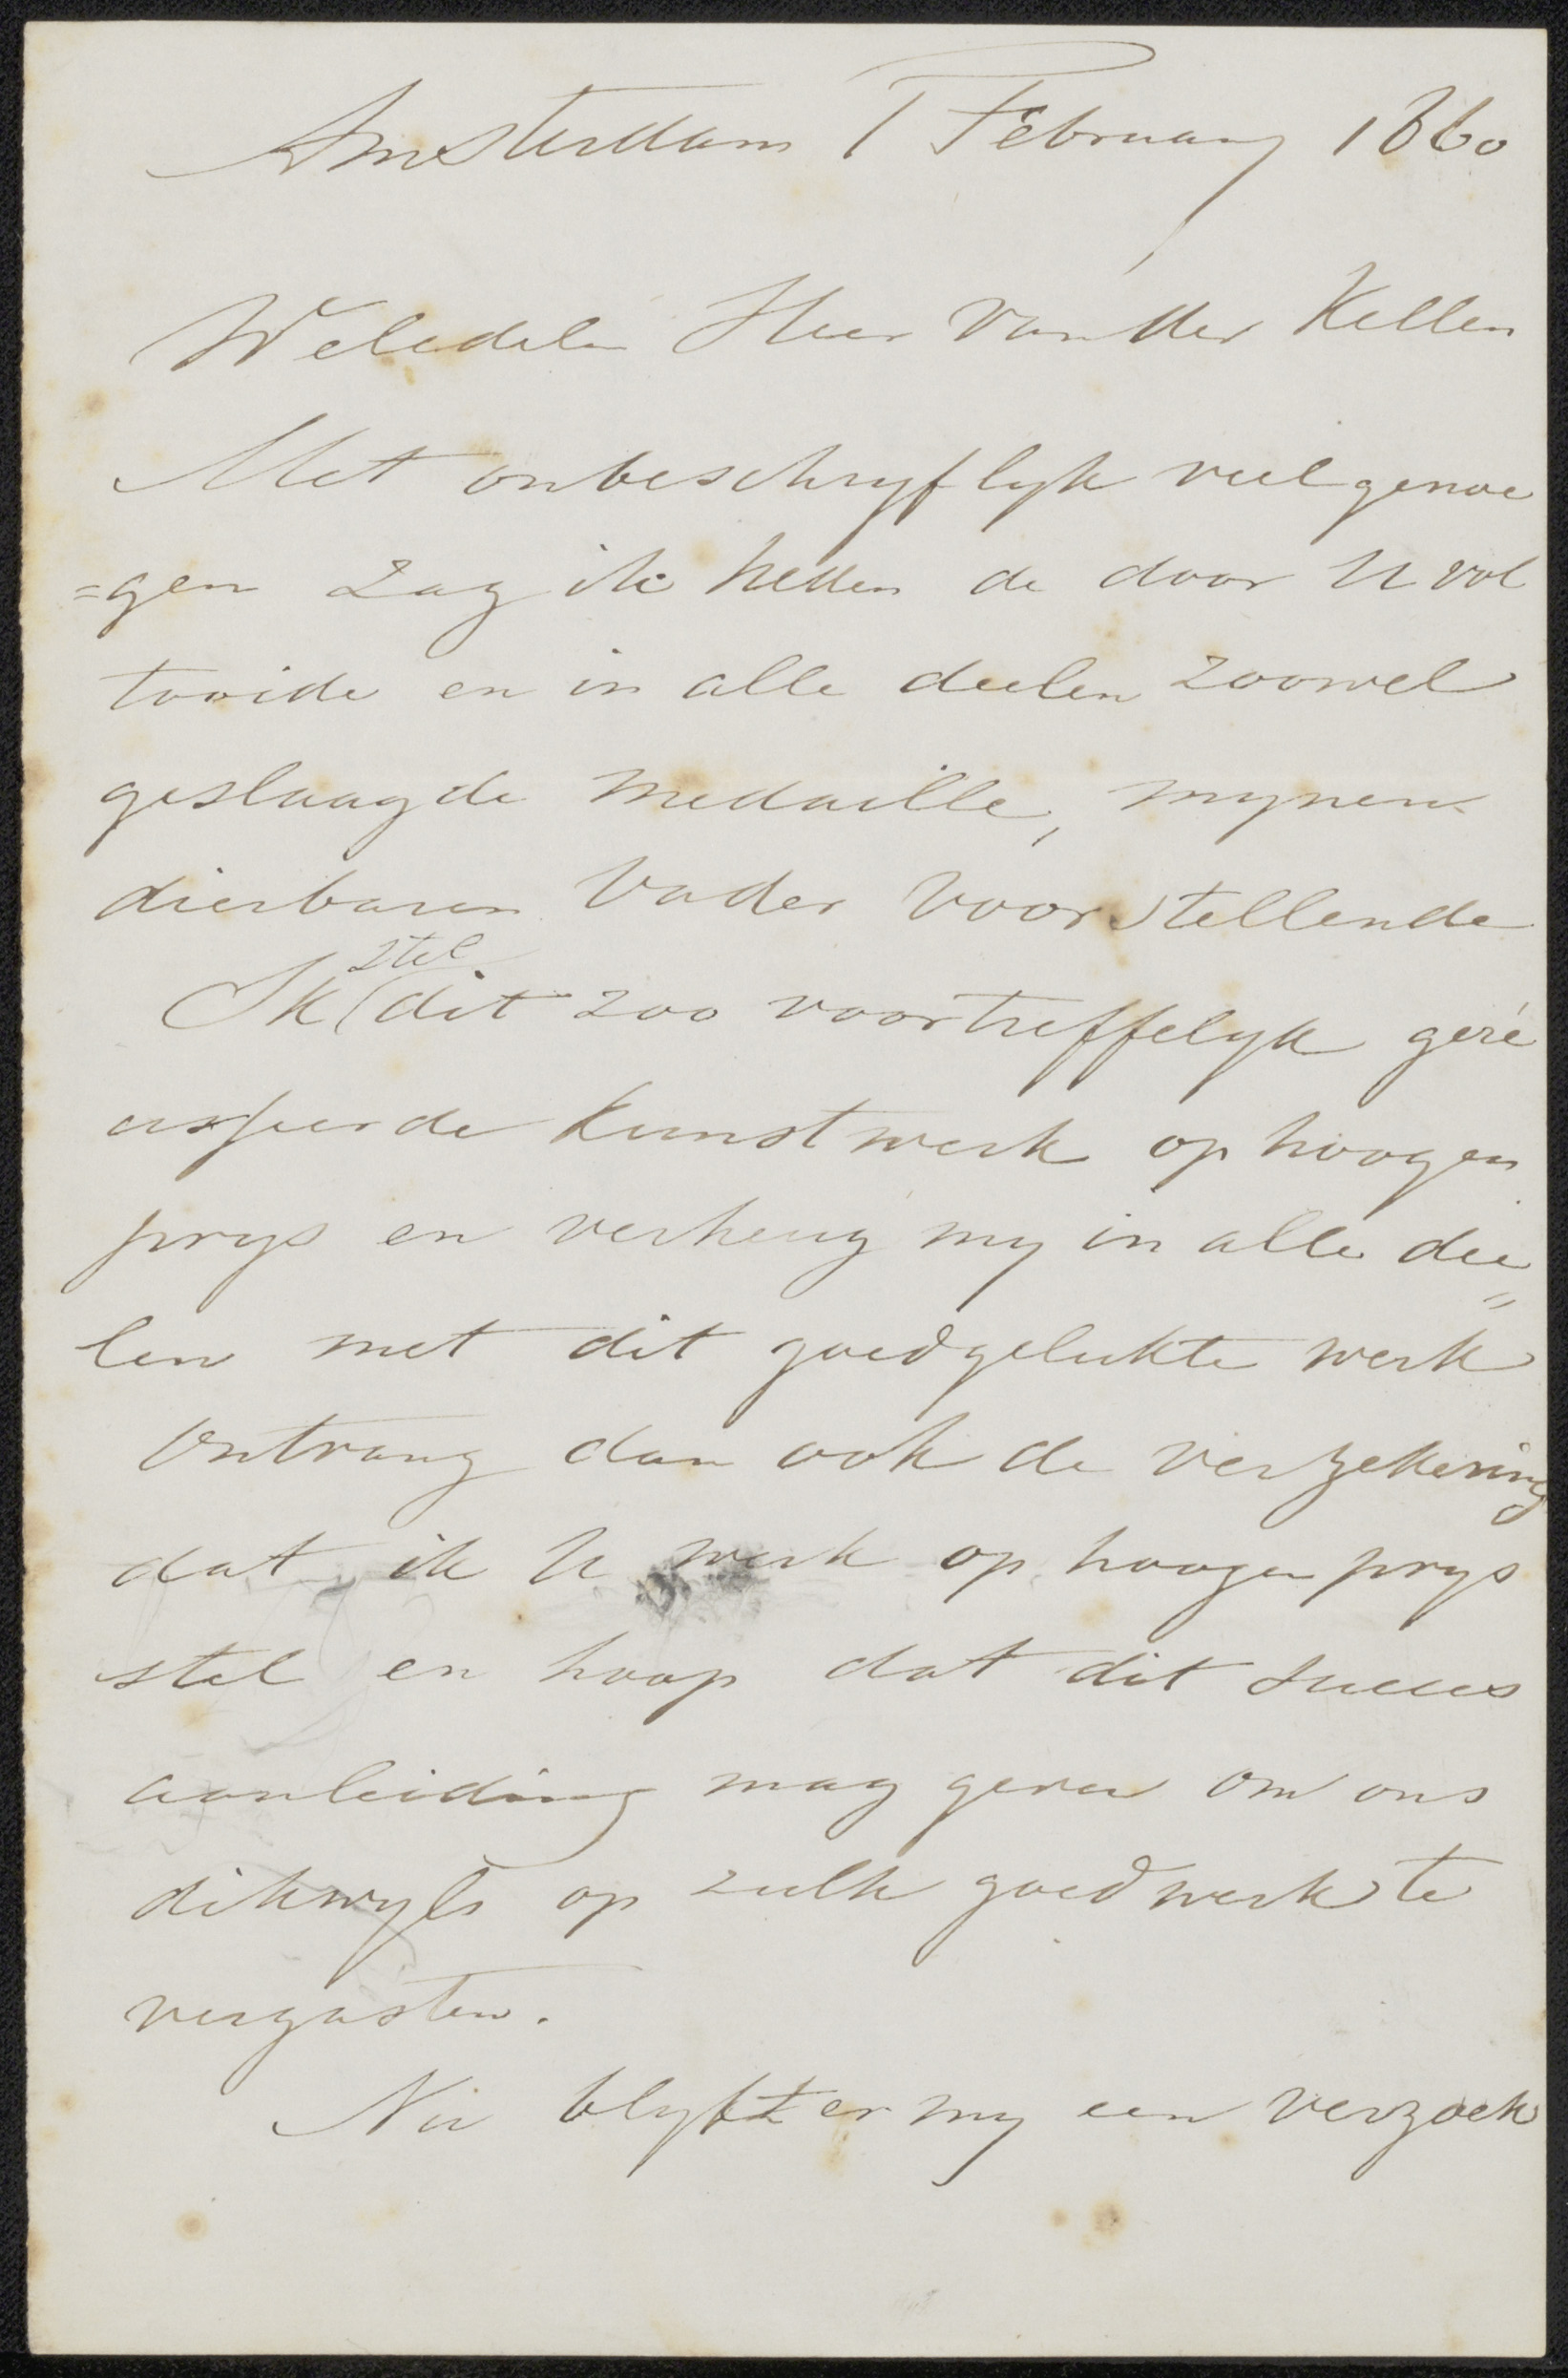 Amsterdam 1 February 1860
Weledele Heer van der Kellen
Met onbeschryflyk veel genoe
=gen zag ik heden de door U vol
tooide en in alle deelen zoowel
geslaagde medaille, mynen
dierbaren Vader voorstellende
Ik stel dit zoo voortreffelyk geré
usseerde kunstwerk op hoogen
prys en verheug my in alle dee
len met dit goedgelukte werk
Ontvang dan ook de verzekering
dat ik U werk op hoogen prys
stel en hoop dat dit succes
aanleiding mag geven om ons
dikwyls op zulk goed werk te
vergasten.
Nu blyft er my een verzoek